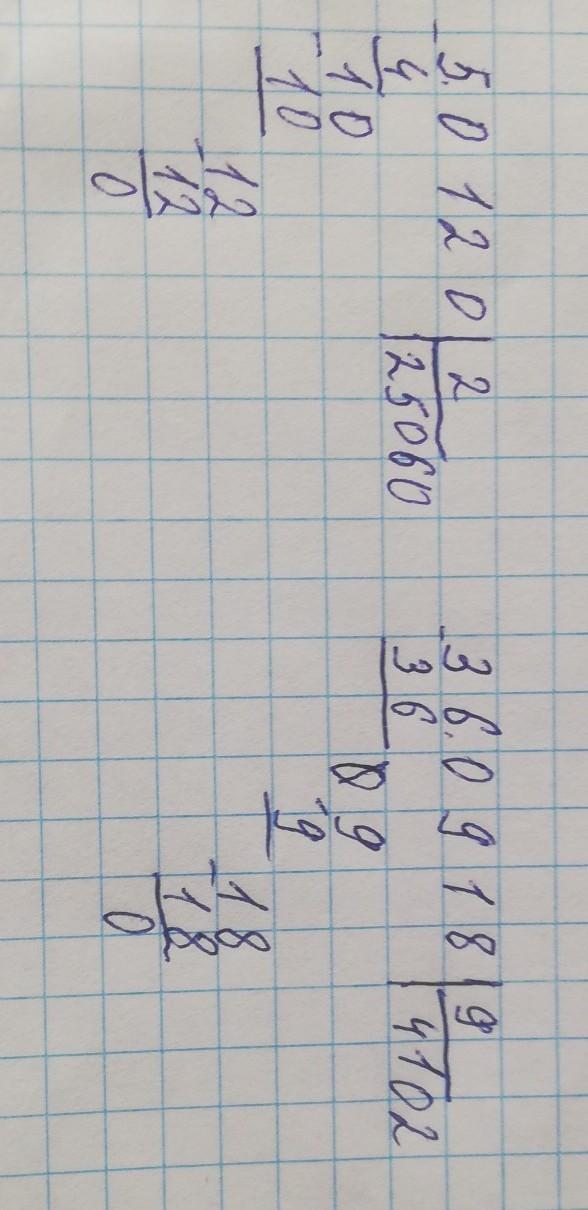 -5.0120|2
4|25060
-10
10
-12
12
0
-36.0918|9
36|4102
09
-9
-18
18
0